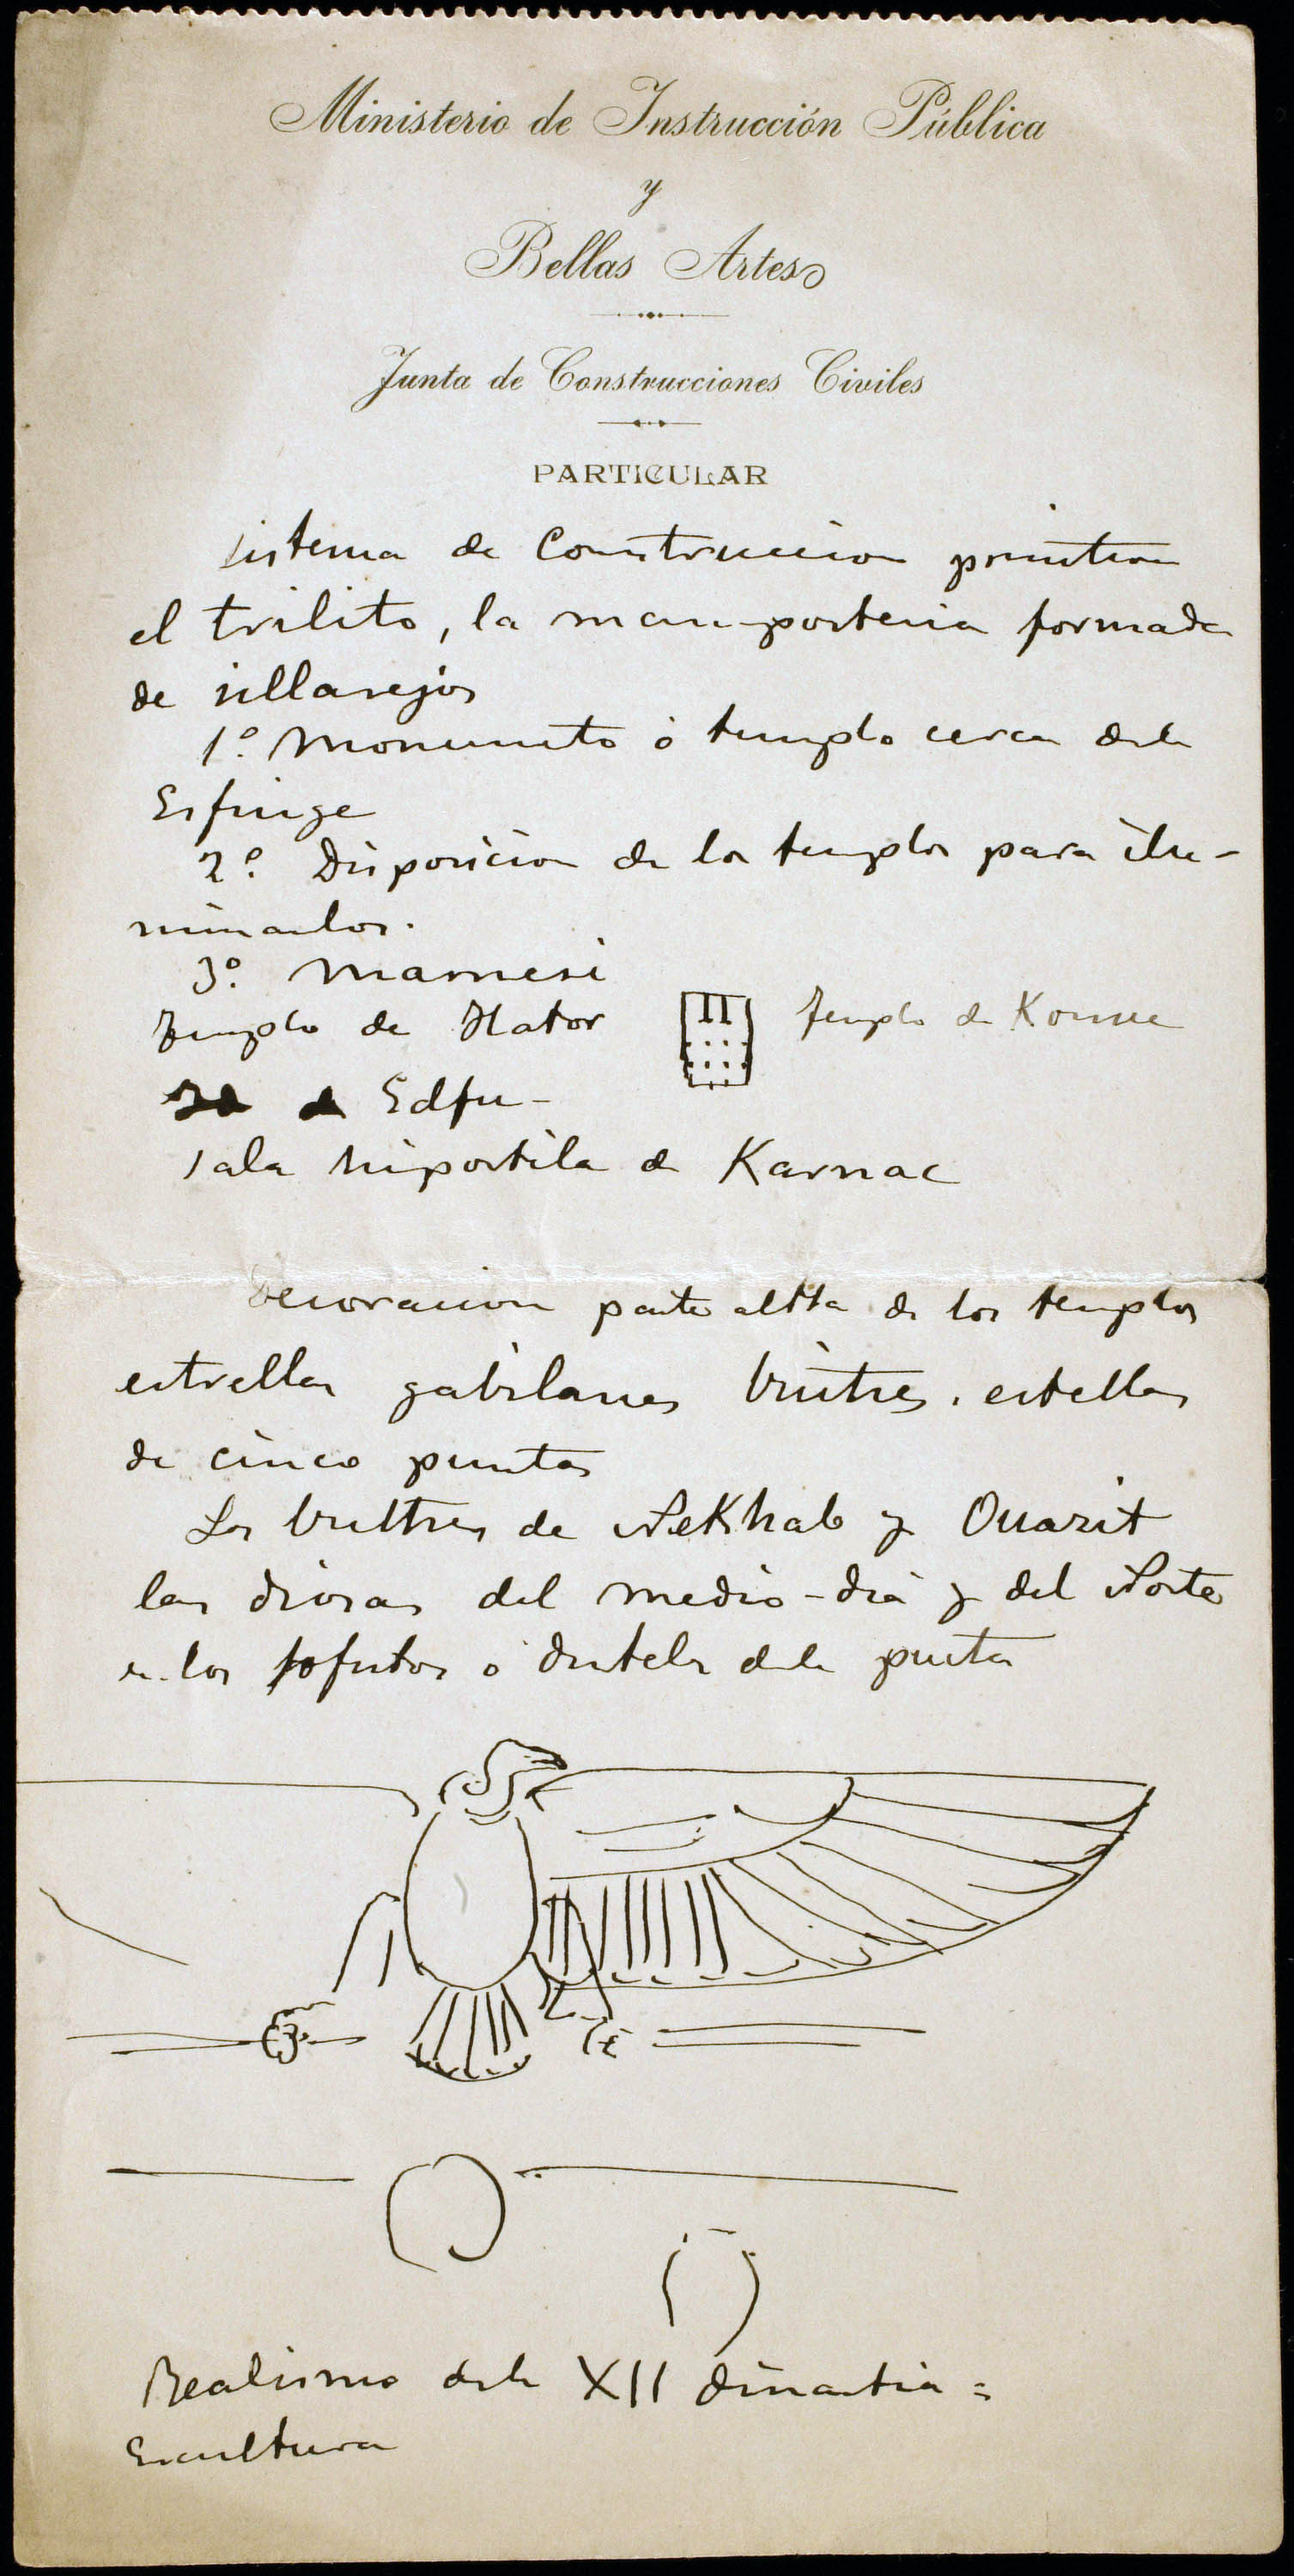 Ministerio de Instrucción Pública
y
Bellas Artes
Junta de Construcciones Civiles
PARTICULAR
sistema de Construccion
el trilito, la mamposteria formada
de sillarejos
1º. Monumento ó templo cerca dela
Esfinge
2º. Disposicion de los templos para ilu-
minarlos.
3º. Mamesi
Templo de Hator
Templo de
Edfu-
sala hipostila de Karnac
Decoracion parte altta de los templos
estrellas gabilanes buitres. estellas
de cinco puntas
Los buittres de Nekhab y Ouazit
las diosas del medio-dia y del Norte
en los sofitos ó dinteles dela puerta
Realismo dela XII dinastia =
Escultura